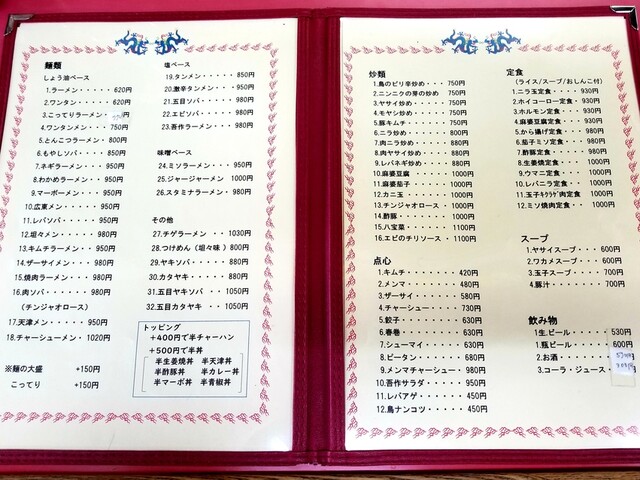 麺類
しょう油ベース
1.ラーメン・・・・・620円
2.ワンタン・・・・・620円
3.こってりラーメン
4.ワンタンメン・・・・750円
5.とんこつラーメン・・800円
6.もやしソバ・・・・850円
7.ネギラーメン・・・・950円
8.わかめラーメン・・・980円
9.マーボーメン・・・・950円
10.広東メン・・・・・950円
11.レバソバ・・・・・950円
12.坦々メン・・・・・980円
13.キムチラーメン・・・950円
14.ザーサイメン・・・980円
15.焼肉ラーメン・・・980円
16.肉ソバ・・・・・980円
(チンジャオロース)
17.天津メン・・・・・950円
18.チャーシューメン・1020円
※麺の大盛 +150円
こってり +150円
塩ベース
19.タンメン・・・・・850円
20.激辛タンメン・・・950円
21.五目ソバ・・・・・980円
22.エビソバ・・・・・980円
23.吾作ラーメン・・・980円
味噌ベース
24.ミソラーメン・・・950円
25.ジャージャーメン 950円
26.スタミナラーメン・980円
その他
27.チゲラーメン・・・1030円
28.つけめん(坦々味)800円
29.ヤキソバ・・・・・880円
30.カタヤキ・・・・・880円
31.五目ヤキソバ・・1050円
32.五目カタヤキ・・1050円
トッピング
+400円で半チャーハン
+500円で半丼
半生姜焼丼 半天津丼
半酢豚丼 半カレー丼
半マーボ丼 半青椒丼
炒類
1.鳥のピリ辛炒め・・・750円
2.ニンニクの芽の炒め 750円
3.ヤサイ炒め・・・・750円
4.モヤシ炒め・・・・750円
5.豚キムチ・・・・・950円
6.ニラ炒め・・・・・800円
7.肉ニラ炒め・・・・900円
8.肉ヤサイ炒め・・・900円
9.レバネギ炒め・・・900円
10.麻婆豆腐・・・・1000円
11.麻婆茄子・・・・1000円
12.カニ玉・・・・・1000円
13.チンジャオロース・1000円
14.酢豚・・・・・・1000円
15.八宝菜・・・・・1100円
16.エビのチリソース・1100円
点心
1.キムチ・・・・・・420円
2.メンマ・・・・・・480円
3.ザーサイ・・・・・580円
4.チャーシュー・・・730円
5.餃子・・・・・・・530円
6.春巻・・・・・・・530円
7.シューマイ・・・・530円
8.ピータン・・・・・680円
9.メンマチャーシュー・980円
10.吾作サラダ・・・・950円
11.レバアゲ・・・・・450円
12.鳥ナンコツ・・・・450円
定食
(ライス/スープ/おしんこ付)
1.ニラ玉定食・・・・930円
2.ホイコーロー定食・・930円
3.ホルモン定食・・・930円
4.麻婆豆腐定食・・・930円
5.から揚げ定食・・・980円
6.茄子ミソ定食・・・980円
7.酢豚定食・・・・・980円
8.生姜焼定食・・・1000円
9.ウマニ定食・・・1000円
10.レバニラ定食・・1000円
11.玉子ｷｸﾗｹﾞ肉定食 1000円
12.ミソ焼肉定食・・1000円
スープ
1.ヤサイスープ・・・600円
2.ワカメスープ・・・600円
3.玉子スープ・・・・700円
4.豚汁・・・・・・・700円
飲み物
1.生ビール・・・・・530円
1.瓶ビール・・・・・600円
2.お酒・・・・・・
3.コーラ・ジュース・